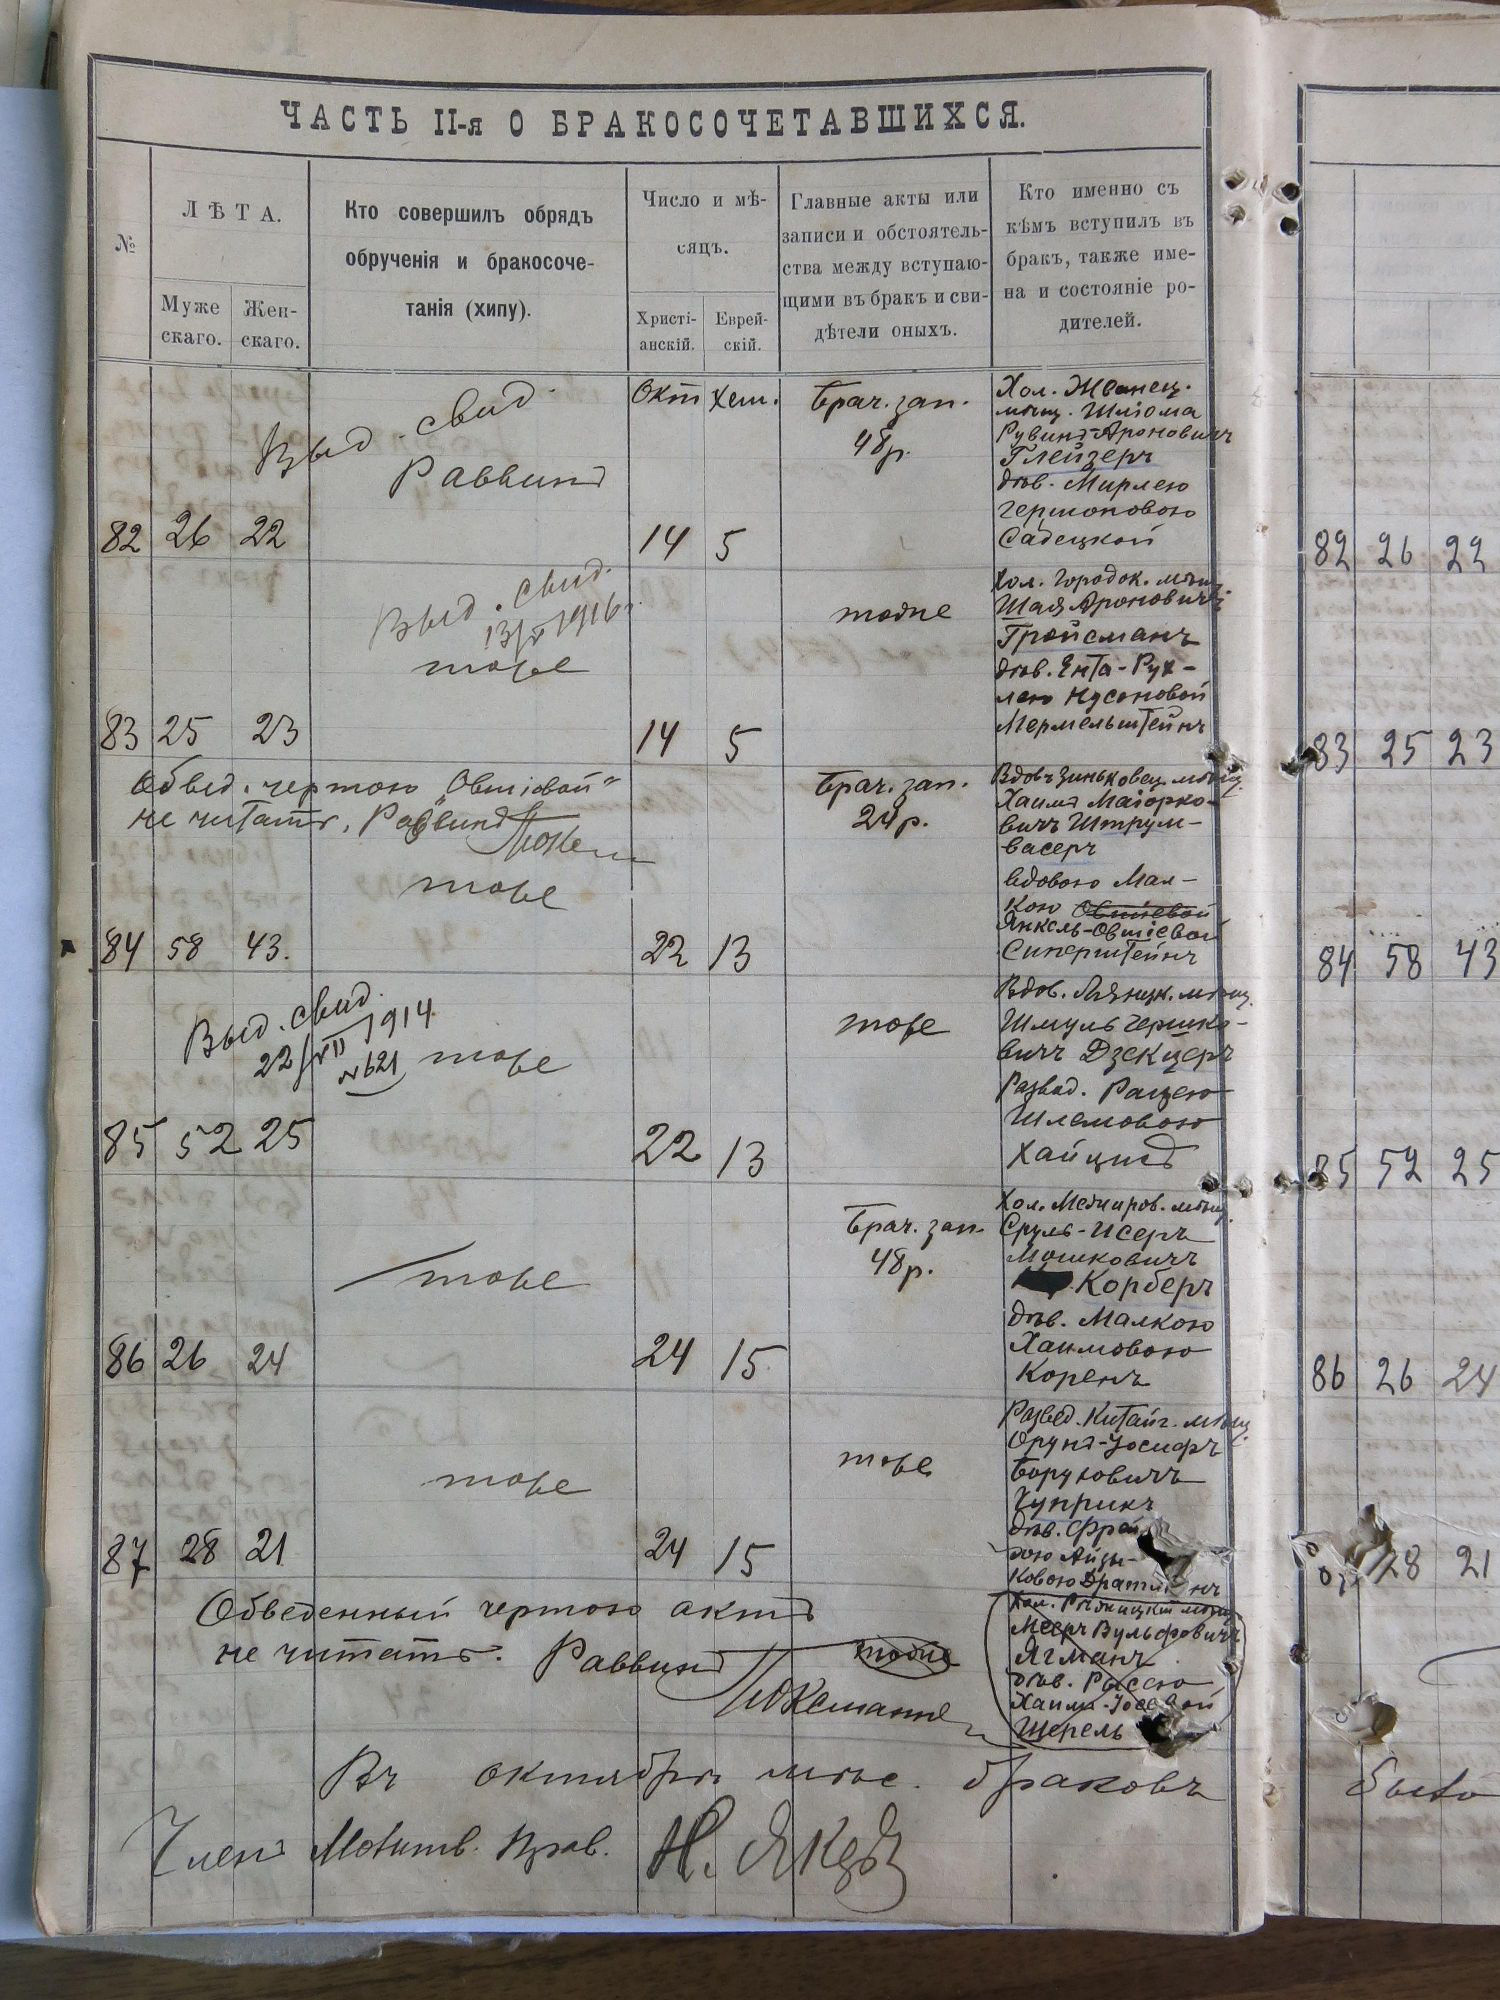 ЧАСТЬ II-я О БРАКОСОЧЕТАВШИХСЯ.
№
ЛѢТА.
Муже
скаго.
Жен-
скаго.
Кто совершилъ обрядъ
обрученія и бракосоче-
танія (хипу).
Число и мѣ-
сяцъ.
Христі-
анскій.
Еврей-
скій.
Главные акты или
записи и обстоятель-
ства между вступаю-
щими въ бракъ и сви-
дѣтели оныхъ.
Кто именно съ
кѣмъ вступилъ въ
бракъ, также име-
на и состояніе ро-
дителей.
Выд. свид.
Раввинъ
Окт Хеш.
Брач. зап.
48 р.
Хол. Жванец.
мѣщ. Шліома
Рувинъ-Ароновичъ
Глейзеръ
дѣв. Мирлею
Гершоновою
Садецкой
82 26 22 14 5
Выд. свид.
13/V 1916 г.
тоже
тоже
Хол. Городок. мѣщ.
Шая Ароновичъ
Гройсманъ
дѣв. Ента-Рух-
лею Нусоновой
Мермельштейнъ
83 25 23 14 5
Обвед. чертою "Овшіевой"
не читать. Раввинъ
тоже
Брач. зап.
24 р.
Вдовъ Зиньковец. мѣщ.
Хаимъ Маіорко-
вичъ Штрум-
васеръ
вдовою Мал-
кою Овшіевой
Янкель-Овшіевой
Сиперштейнъ
84 58 43. 22 13
Выд. свид.
22/VII 1914
№621
тоже
тоже
Вдов. Лянцк. мѣщ.
Шмуль Гершко-
вичъ Дзекцеръ
Развед. Рацею
Шлемовою
Хайцисъ
85 52 25 22 13
тоже
Брач. зап.
48 р.
Хол. Межиров. мѣщ.
Сруль-Исеръ
Мошковичъ
Корберъ
дѣв. Малкою
Хаимовою
Коренъ
86 26 24 24 15
тоже
тоже
Развед. Китайг. мѣщ.
Орунъ-Іосифъ
Боруховичъ
Чуприкъ
дѣв. Фрей
дою Айзи-
ковою
87 28 21 24 15
Обведенный чертою актъ
не читать. Раввинъ
тоже
Мееръ Вульфовичъ
Ягманъ
дѣв. Рысею
Хаима-Іосевой
Шерель
Въ октябрѣ мѣс. браковъ
Членъ Молитв. Прав. Н.
82 26 22
83 25 23
84 58 43
85 52 25
86 26 24
28 21
было